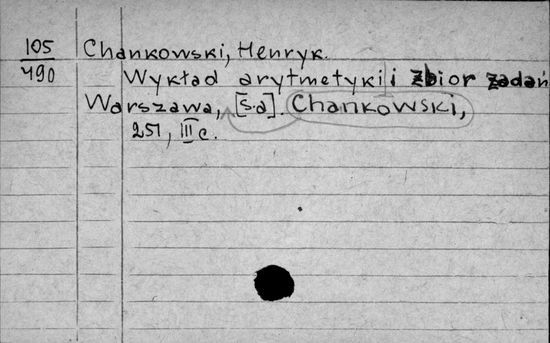 105 Chankowski, Henryk.
490 Wykład arytmetyki i zbior zadań
Warszawa, [s.a]. Chankowski,
251, III c.